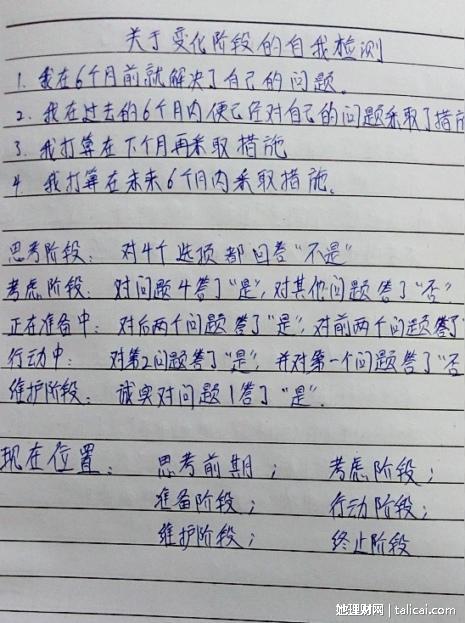 关于变化阶段的自我检测
1. 我在6个月前就解决了自己的问题。
2. 我在过去的6个月内便已经对自己的问题采取了措施
3. 我打算在下个月再采取措施
4 我打算在未来6个月内采取措施。
思考阶段: 对4个选项都回答“不是”
考虑阶段: 对问题4答了“是”, 对其他问题答了“否”
正在准备中: 对后两个问题答了“是”, 对前两个问题答了
行动中: 对第2问题答了“是”, 并对第一个问题答了“否
维护阶段: 诚实对问题1答了“是”.
现在位置: 思考前期; 考虑阶段;
准备阶段; 行动阶段;
维护阶段; 终止阶段
她理财网 | talicai.com